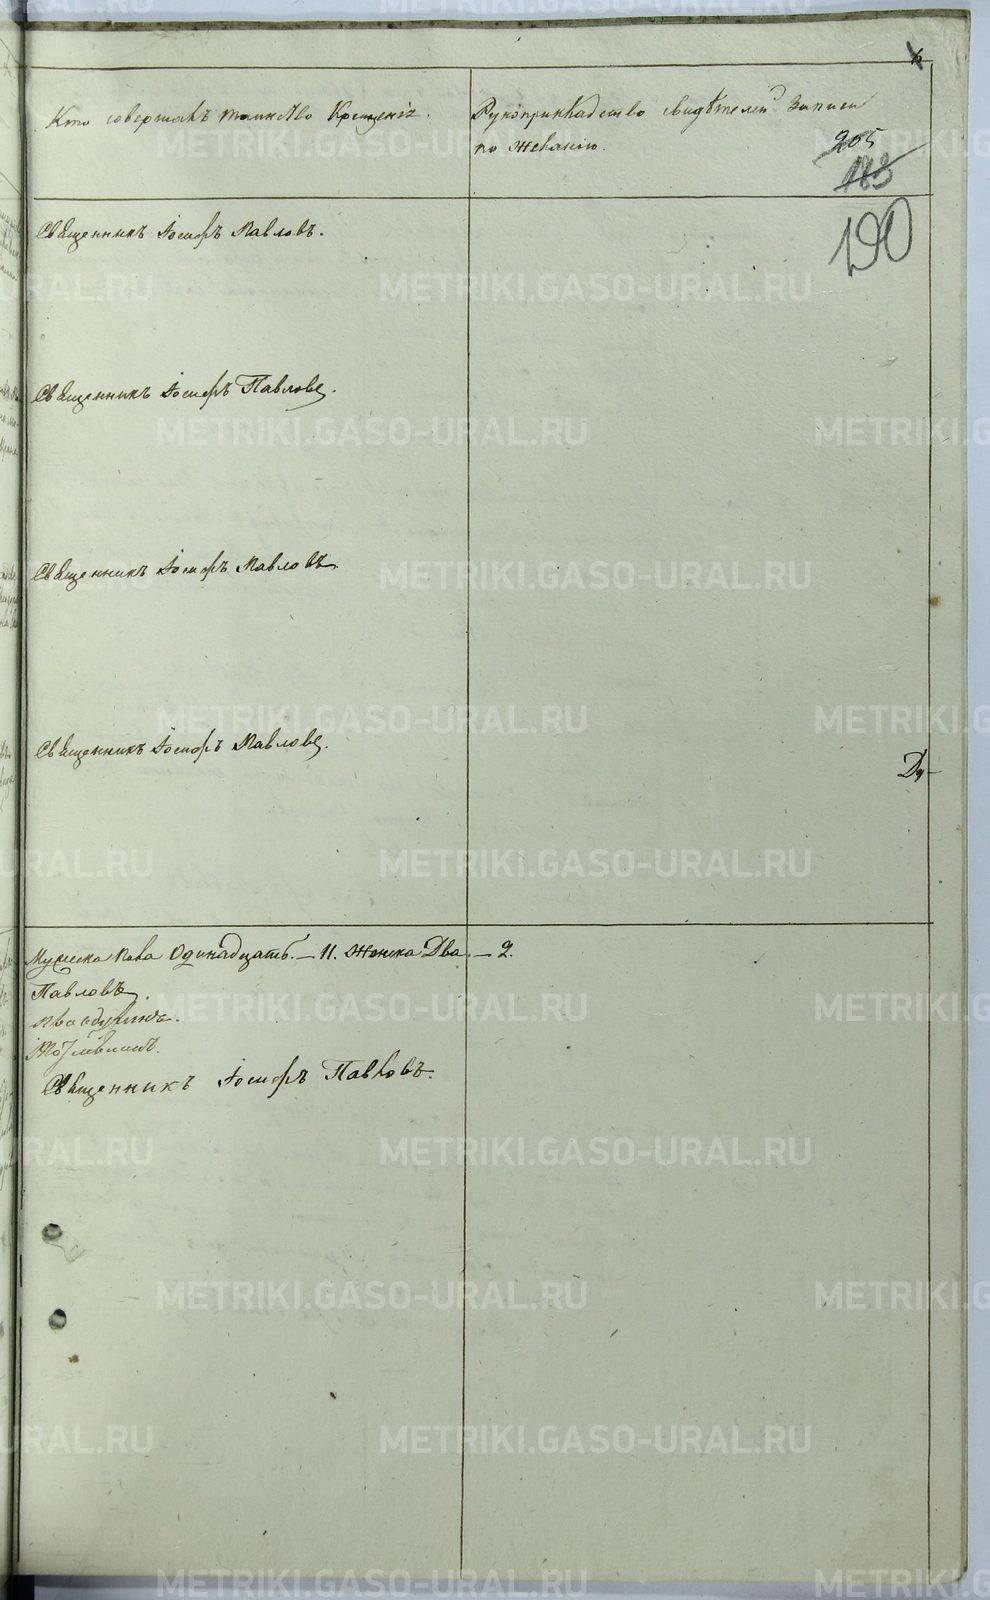 Кто совершалъ таинство Крещенія.
Рукоприкладство свидѣтелей записи
по желанію.
205
183
190
Священникъ Іосифъ Павловъ.
Священникъ Іосифъ Павловъ.
Священникъ Іосифъ Павловъ
Священникъ Іосифъ Павловъ.
Ду-
Мужеска пола Одинадцать. – 11. Женска Два. – 2.
Павловъ.
Священникъ Іосифъ Павловъ.
METRIKI.GASO-URAL.RU